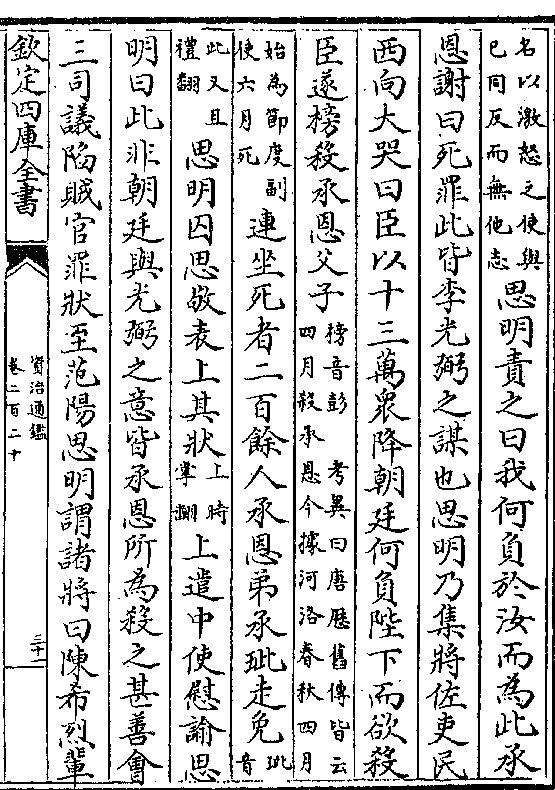 名以激怒之使與
已同反而無他志
思明責之曰我何負於汝而為此承
恩謝曰死罪此皆李光弼之謀也思明乃集將佐吏民
西向大哭曰臣以十三萬衆降朝廷何負陛下而欲殺
臣遂榜殺承恩父子
榜音彭 考異曰唐厯舊傳皆云
四月殺承恩今據河洛春秋四月
始為節度副
使六月死
連坐死者二百餘人承恩弟承玼走免
玼
音
此又且
禮翻
思明囚思敬表上其狀
上時
掌翻
上遣中使慰諭思
明曰此非朝廷與光弼之意皆承恩所為殺之甚善會
三司議陷賊官罪狀至范陽思明謂諸將曰陳希烈輩
欽定四庫全書
資治通鑑
卷二百二十
三十一